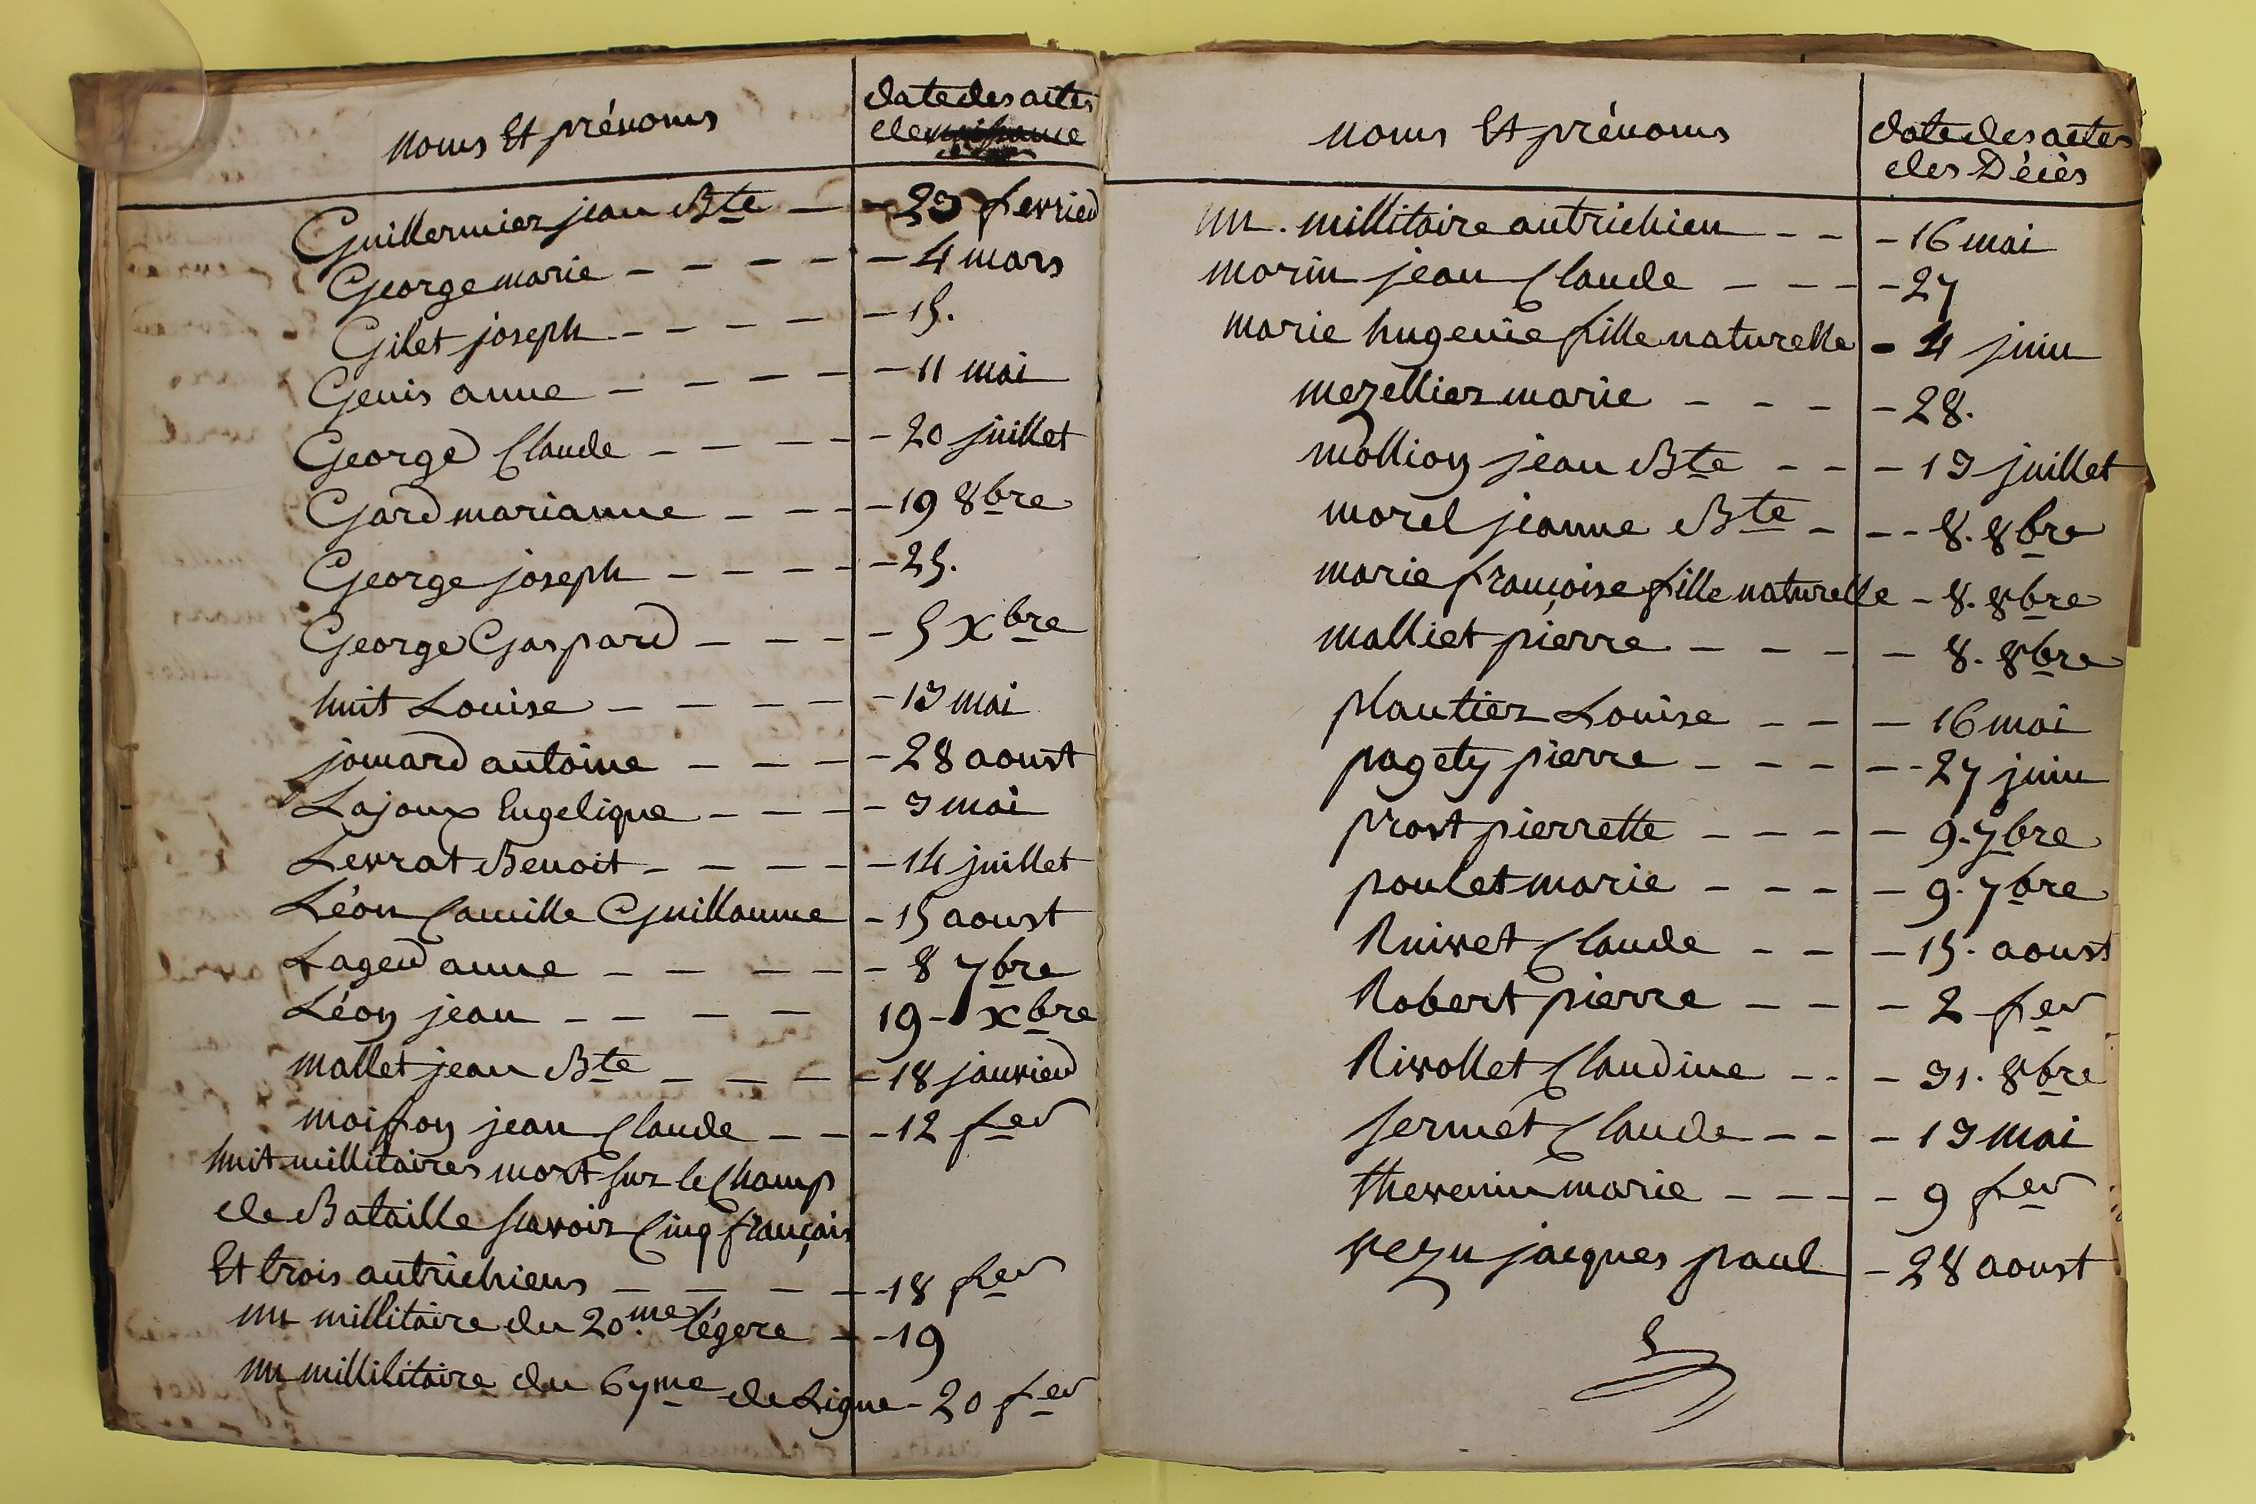 noms Et prénoms
date des actes
de naissance
Guillermier jean Bte - - 23 fevrier
George marie - - - - - 4 mars
Gilet joseph - - - - - 15.
Genis anne - - - - - 11 mai
George Claude - - - - 20 juillet
Gard marianne - - - - 19 8bre
George joseph - - - - - 25.
George Gaspard - - - - 5 Xbre
huit Louise - - - - - 13 mai
jomard antoine - - - - 28 aoust
Lajoux Engelique - - - - 3 mai
Levrat Benoit - - - - - 14 juillet
Léon Camille Guillaume - 15 aoust
Lager anne - - - - - 8 7bre
Léon jean - - - - 19 - Xbre
mallet jean Bte - - - - 18 janvier
moisson jean Claude - - - 12 fer
huit millitaires mort sur le Champ
de Bataille savoir Cinq français
Et trois autrichiens - - - - - 18 fer
un millitaire du 20.me légere - - 19
un millilitaire du 67me de Ligne - 20 fer
noms Et prénoms
date des actes
des Décès
un . millitaire autrichien - - - 16 mai
morin jean Claude - - - - 27
marie hugenie fille naturelle - 4 juin
mezellier marie - - - - 28.
mollion jean Bte - - - 13 juillet
morel jeanne Bte - - - 8. 8bre
marie françoise fille naturelle - 8. 8bre
malliet pierre - - - - - 8. 8bre
plautier Louise - - - 16 mai
pagety pierre - - - - - - 27 juin
prost pierrette - - - - 9. 7bre
poulet marie - - - - 9. 7bre
Ruivet Claude - - - 15. aoust
Robert pierre - - - - 2 fer
Rivollet Claudine - - - 31. 8bre
sermet Claude - - - 13 mai
thevenin marie - - - - 9 fer
vezu jacques paul - 28 aoust